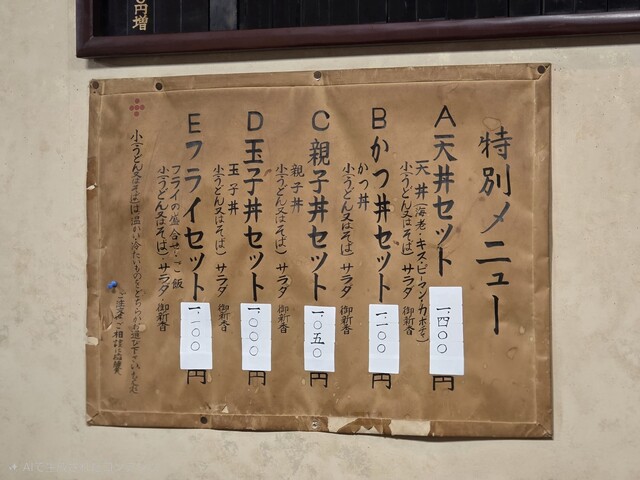 円増
特別メニュー
A天丼セット
一、四〇〇円
天丼(海老・キス・ピーマン・カボチャ)
小(うどん又はそば)サラダ 御新香
Bかつ丼セット
一、一〇〇円
かつ丼
小(うどん又はそば)サラダ 御新香
C親子丼セット
一、〇五〇円
親子丼
小(うどん又はそば)サラダ 御新香
D玉子丼セット
一、〇〇〇円
玉子丼
小(うどん又はそば)サラダ 御新香
Eフライセット
一、一〇〇円
フライの盛合せ・ご飯
小(うどん又はそば)・サラダ・御新香
小(うどん又はそば)は温かい冷たいものをどちらかお選び下さいもり